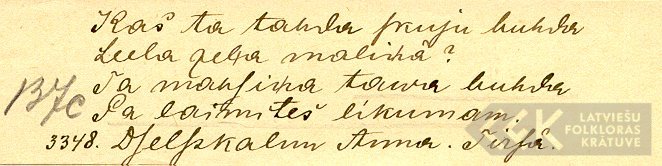 Kas ta tahda skuju buhda
Leela zeļa maliņā?
Ta mahsiņa tawa buhda
Pa laimites likumam.
137c
3348. Dzelzkaln Anna. Tirzā.
LATVIEŠU
FOLKLORAS
KRĀTUVE